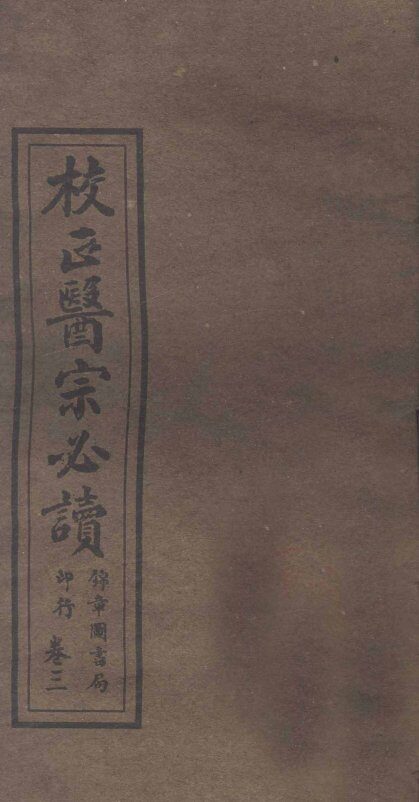 校正醫宗必讀
錦章圖書局
印行 卷三